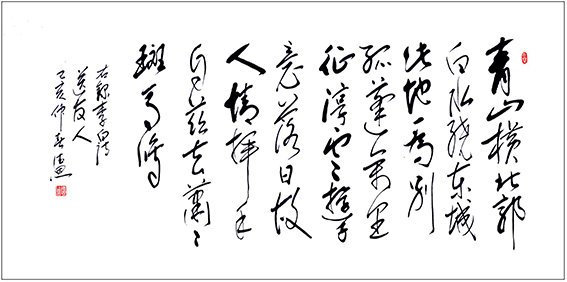 青山横北郭
白水绕东城
此地一为别
孤蓬万里
征浮云々游子
意落日故
人情挥手
自兹去萧々
斑马鸣
右录李白诗
送友人
亥仲春